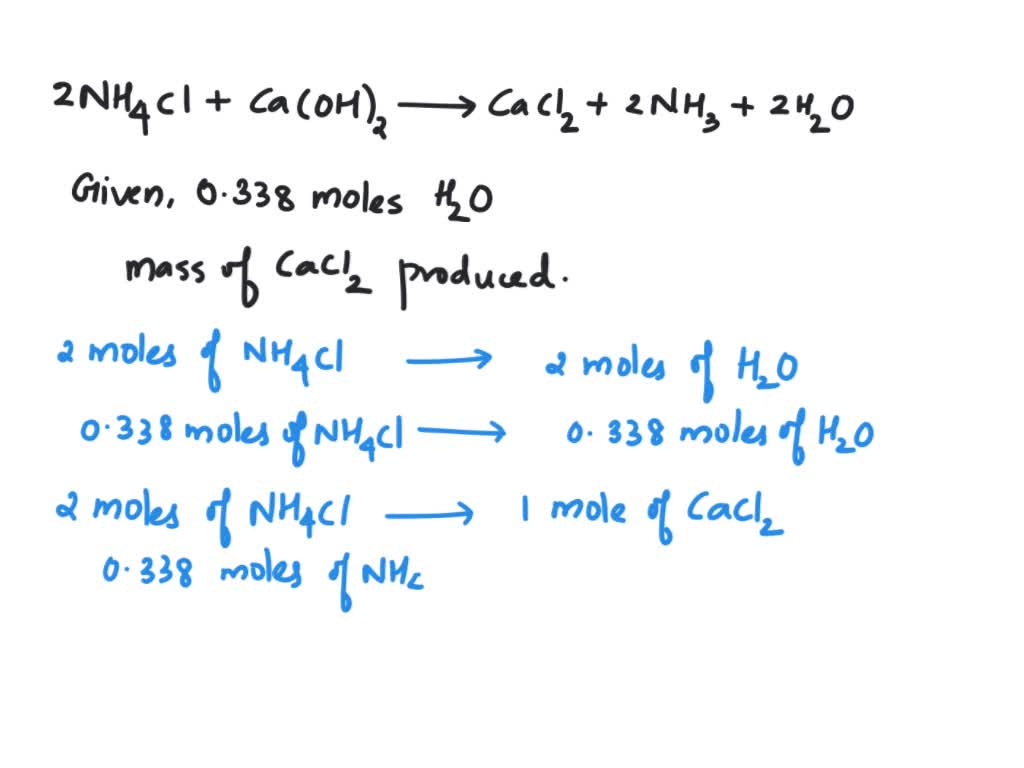 2NH₄Cl + Ca(OH)₂ ⟶ CaCl₂ + 2NH₃ + 2H₂O
Given, 0.338 moles H₂O
mass of CaCl₂ produced.
2 moles of NH₄Cl ⟶ 2 moles of H₂O
0.338 moles of NH₄Cl ⟶ 0.338 moles of H₂O
2 moles of NH₄Cl ⟶ 1 mole of CaCl₂
0.338 moles of NH